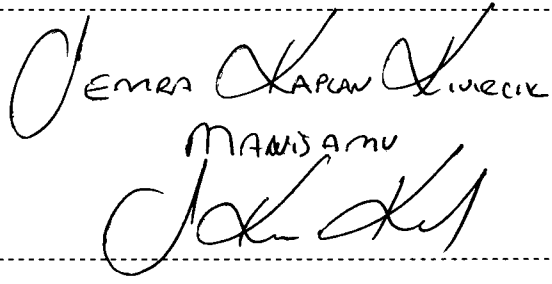 SEMRA KAPLAN KIVIRCIK
MANİSA MV